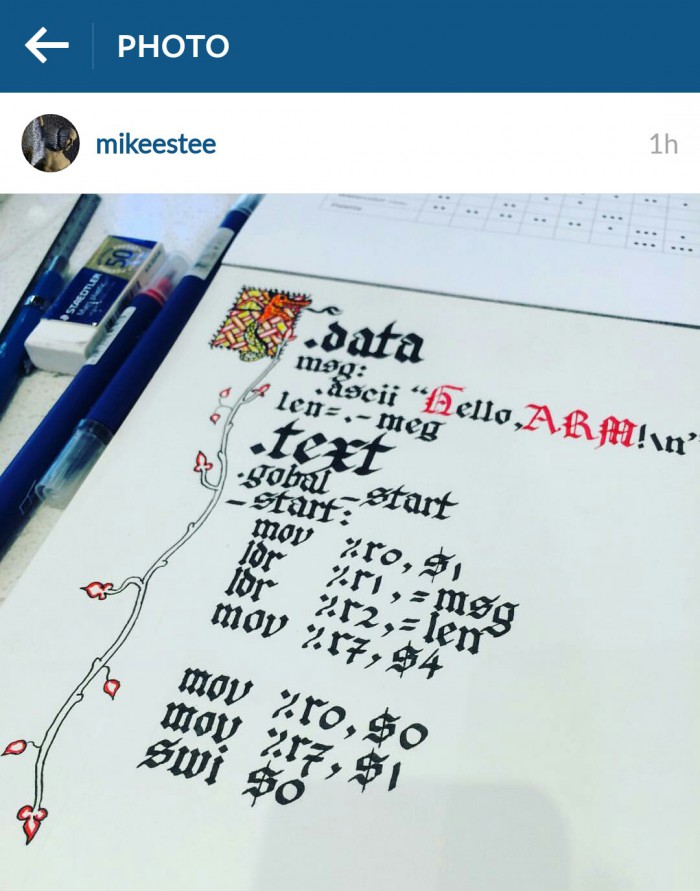 PHOTO
mikeestee
1h
STAEDTLER
50
.data
msg:
.ascii "Hello, ARM!\n"
len=.- meg
.text
.gobal _start
_start:
mov %r0, $1
ldr %r1, =msg
ldr %r2, =len
mov %r7, $4
mov %r0, $0
mov %r7, $1
swi $0